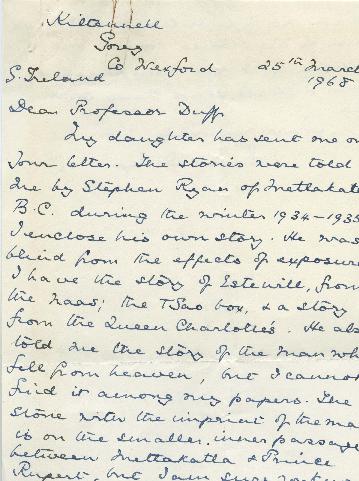 Kiltennell
Gorey
Co Wexford 25th March
S. Ireland 1968
Dear Professor Duff
My daughter has sent me on
your letter. The stories were told
me by Stephen Ryan of Metlakatla
B.C. during the winter 1934-1935
I enclose his own story. He was
blind from the effects of exposure
I have the story of Estewill, from
the Naas; the TSao box, & a story
from the Queen Charlottes. He also
told me the story of the man who
fell from heaven, but I cannot
find it among my papers. The
stone with the imprint of the man
is on the smaller inner passage
between Metlakatla & Prince
Rupert, but I am sure